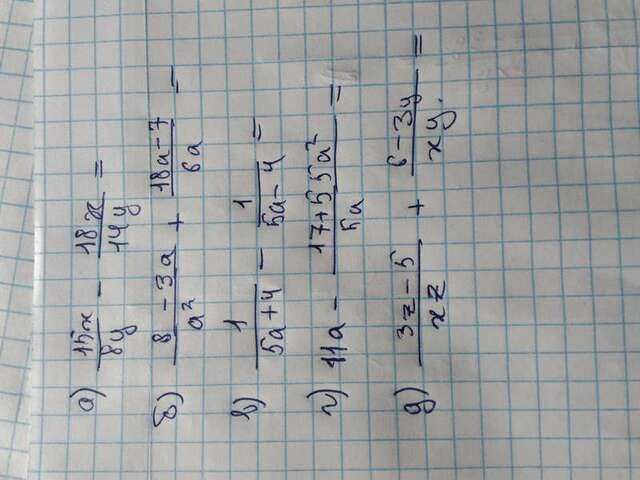 а) 15x/8y - 18x/14y =
б) 8-3a/a² + 18a-7/6a =
в) 1/5a+4 - 1/5a-4 =
г) 11a - 17+55a²/5a =
д) 3z-5/xz + 6-3y/xy. =